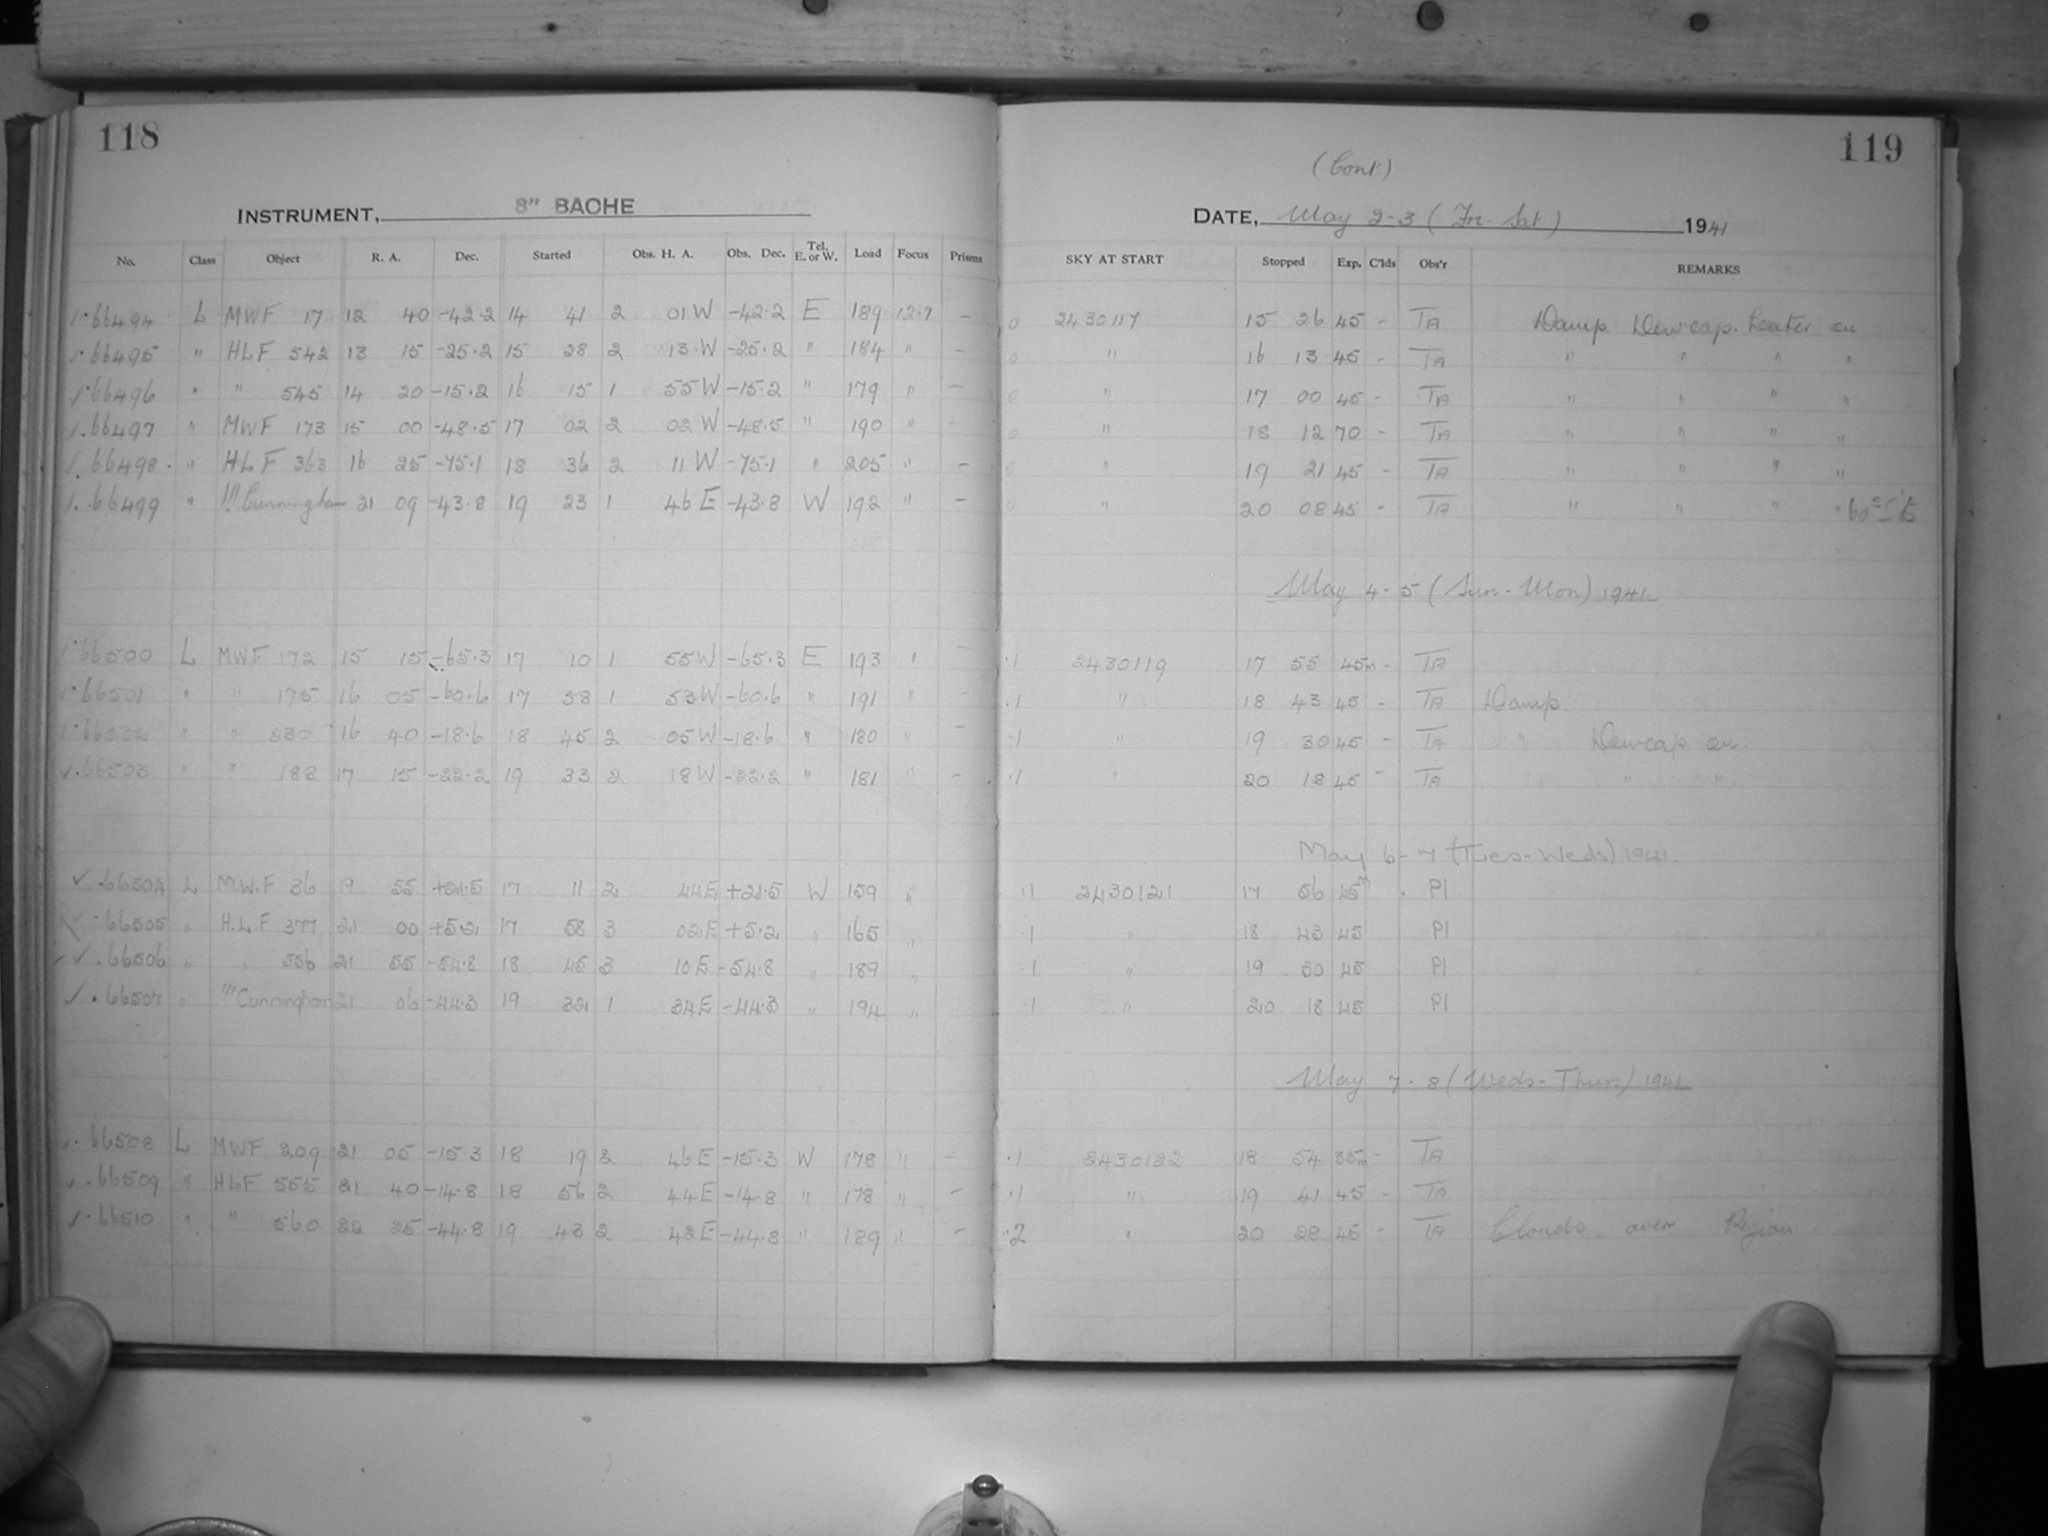 118
INSTRUMENT, 8" BACHE
No. Class Object R. A. Dec. Started Obs. H. A. Obs. Dec. Tel. E. or W. Load Focus Prisms
66494 L MWF 17 12 40 -42.2 14 41 2 01 W -42.2 E 189 12.7 -
66495 " HLF 542 13 15 -25.2 15 28 2 13 W -25.2 " 184 " -
66496 " " 545 14 20 -15.2 16 15 1 55 W -15.2 " 179 " -
66497 " MWF 173 15 00 -48.5 17 02 2 02 W -48.5 " 190 " -
66498 " HLF 363 16 25 -75.1 18 36 2 11 W -75.1 " 205 " -
66499 " !!! Cunningham 21 09 -43.8 19 23 1 46 E -43.8 W 192 " -
66500 L MWF 172 15 15 -65.3 17 10 1 55 W -65.3 E 193 " -
66501 " " 175 16 05 -60.6 17 58 1 53 W -60.6 " 191 " -
66502 " " 16 40 -18.6 18 45 2 05 W -18.6 " 180 " -
66503 " " 188 17 15 -22.2 19 33 2 18 W -22.2 " 181 " -
✓ 66504 L M.W.F 36 19 55 +21.5 17 11 2 44 E +21.5 W 159 "
✓ 66505 " H.L.F 377 21 00 +5.2 17 58 3 02 E +5.2 " 165 "
✓ 66506 " " 556 21 55 -54.8 18 45 3 10 E -54.8 " 189 "
✓ 66507 " !!! Cunningham 21 06 -44.3 19 32 1 34 E -44.3 " 194 "
66508 L MWF 209 21 05 -15.3 18 19 2 46 E -15.3 W 178 " -
66509 " HLF 555 21 40 -14.8 18 56 2 44 E -14.8 " 178 " -
66510 " " 560 22 25 -44.8 19 43 2 42 E -44.8 " 189 " -
119
(Cont)
DATE, May 2-3 (Fri. Sat) 1941
SKY AT START Stopped Exp. C'lds Obs'r REMARKS
0 2430117 15 26 45 - TA Damp Dewcap heater on
0 " 16 13 45 - TA " " " "
0 " 17 00 45 - TA " " " "
0 " 18 12 70 - TA " " " "
0 " 19 21 45 - TA " " " "
0 " 20 08 45 - TA " " " "
May 4-5 (Sun-Mon) 1941
.1 2430119 17 55 45m - TA
.1 " 18 43 45 - TA Damp.
.1 " 19 30 45 - TA " Dewcap on
.1 " 20 18 45 - TA " "
May 6-7 (Tues-Weds) 1941
.1 2430121 17 56 45m . PI
.1 " 18 43 45 PI
.1 " 19 30 45 PI
.1 " 20 18 45 PI
May 7-8 (Weds-Thurs) 1941
.1 2430122 18 54 35m - TA
.1 " 19 41 45 - TA
.2 " 20 28 45 - TA Clouds over Region